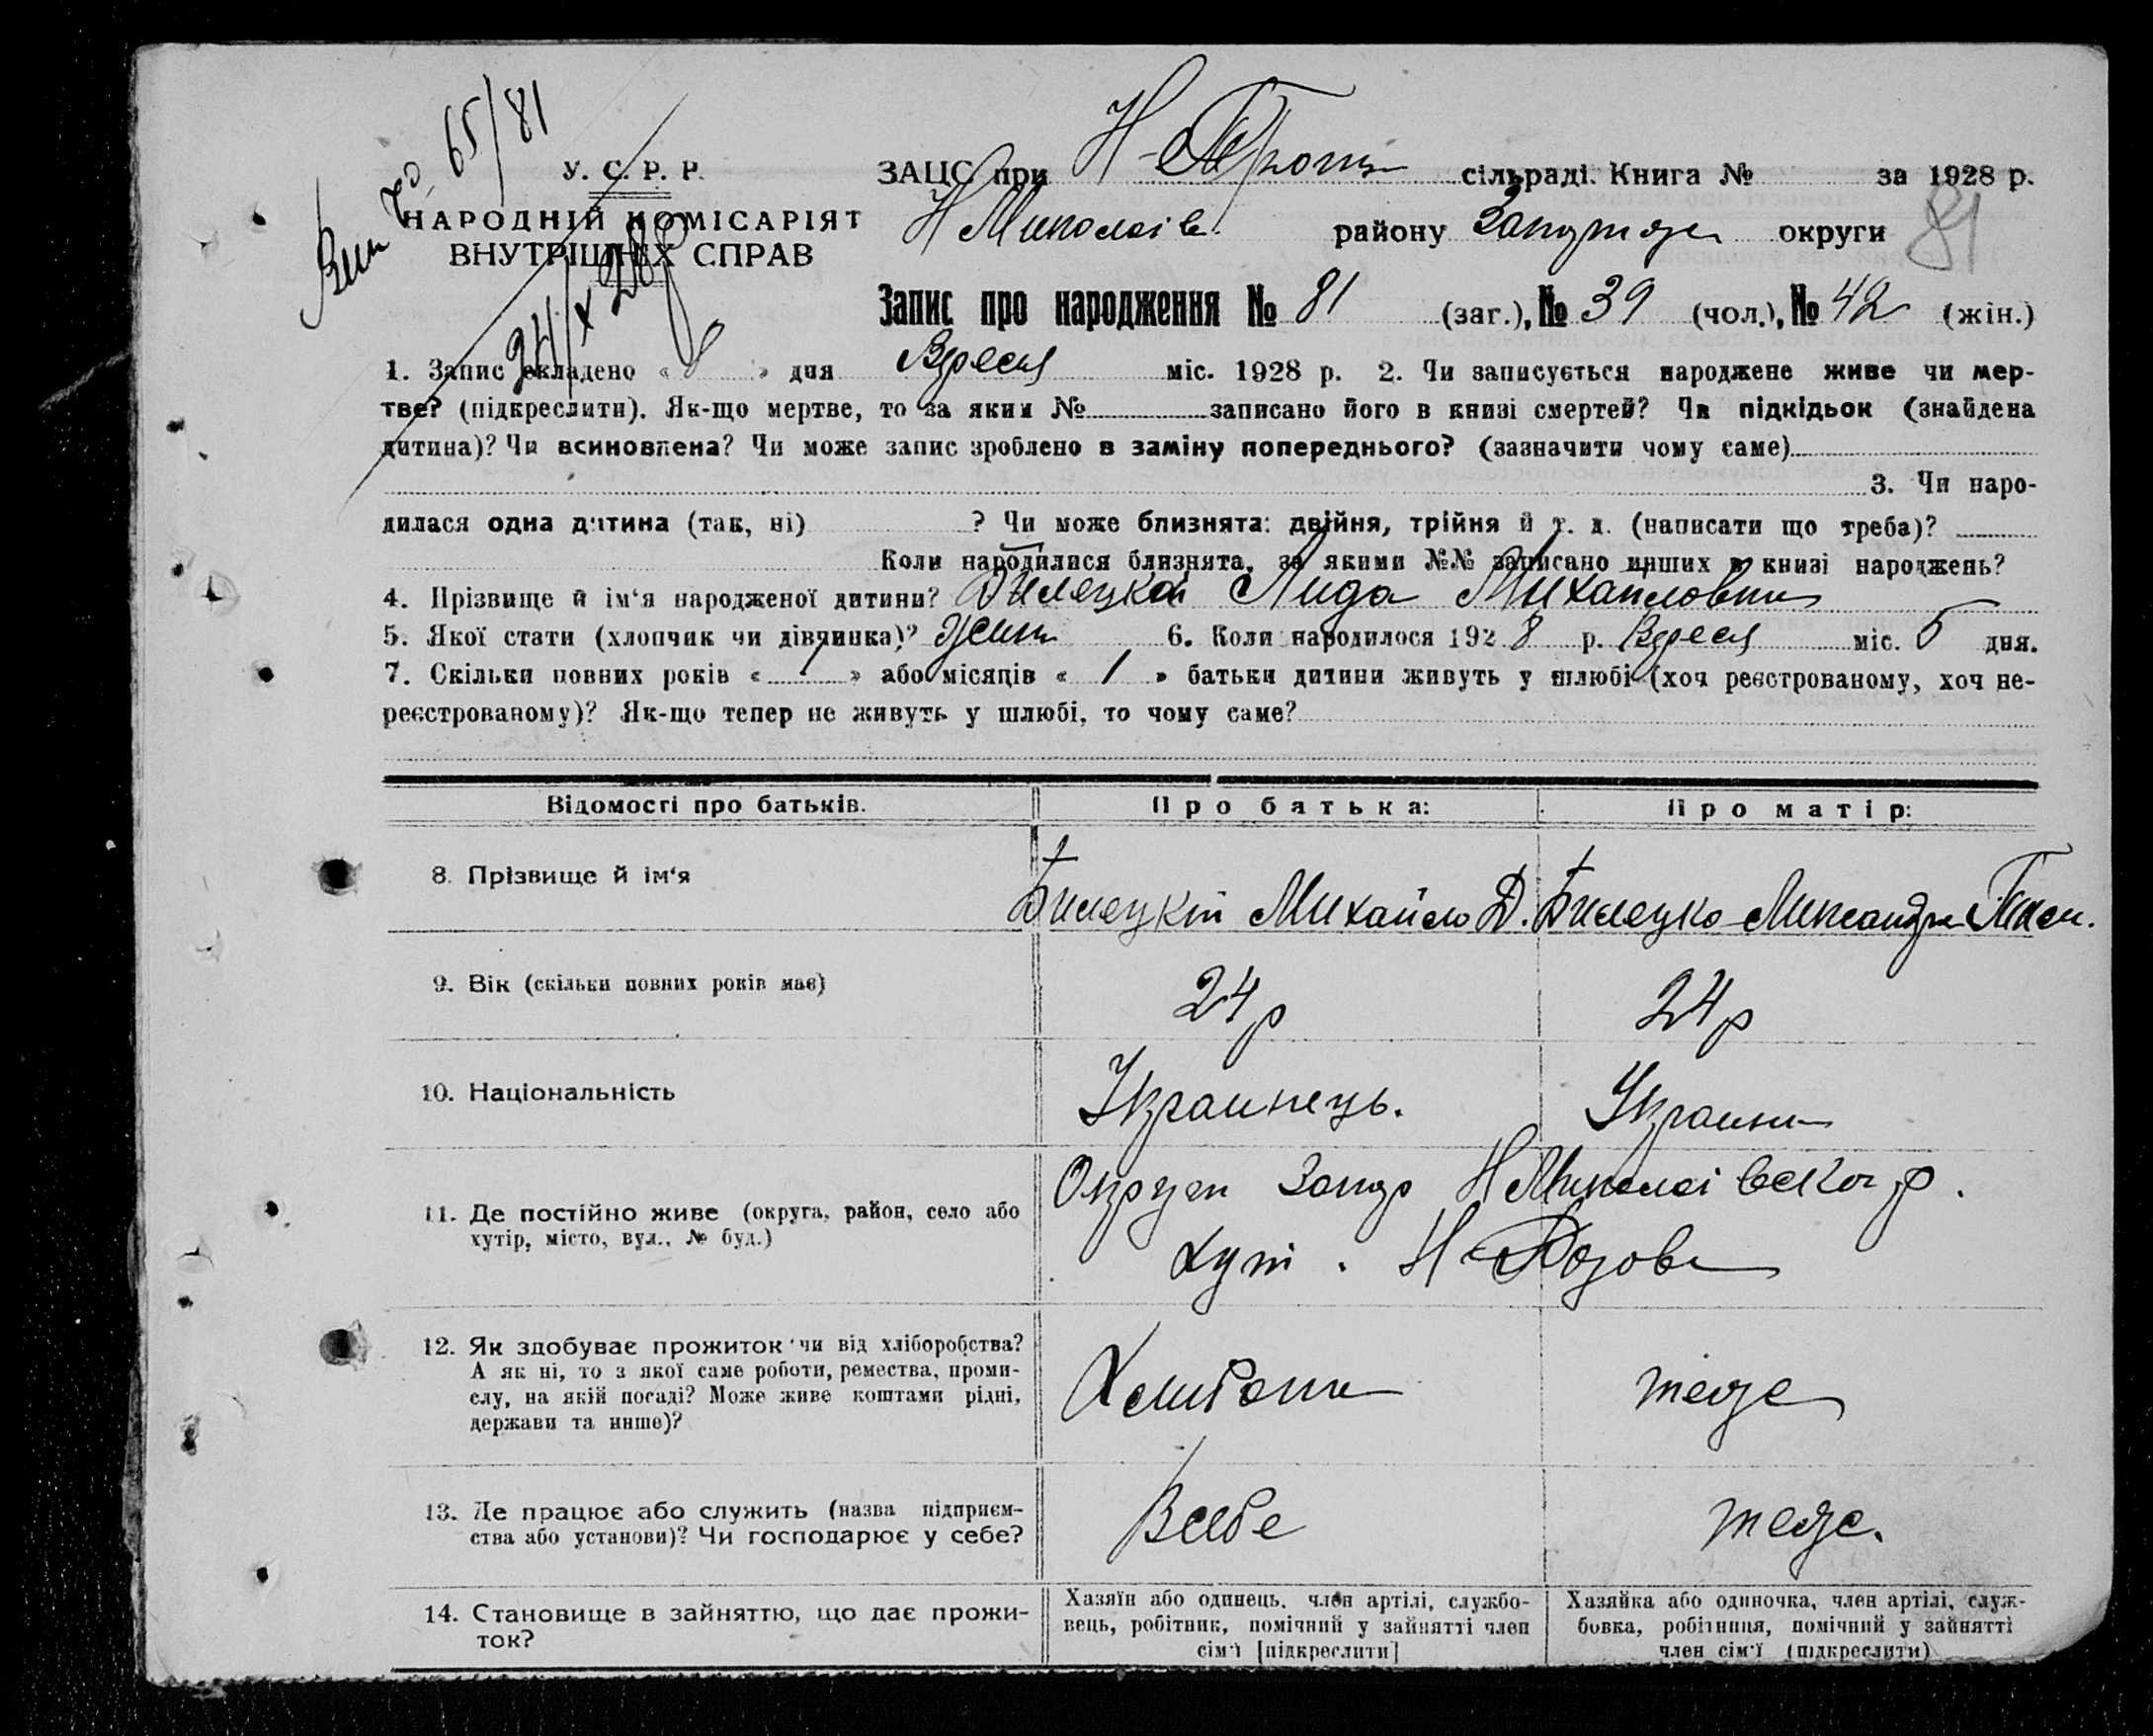 65/81
У. С. Р. Р.
НАРОДНІЙ КОМІСАРІЯТ
ВНУТРІШНІХ СПРАВ
24/X 28р
ЗАЦС при Н- сільраді. Книга № за 1928 р.
Н Миколаів. району округи
81
Запис про народження № 81 (заг.), № 39 (чол.), № 42 (жін.)
1. Запис складено « 8 » дня Вересня міс. 1928 р. 2. Чи записується народжене живе чи мер-
тве? (підкреслити). Як-що мертве, то за яким № записано його в книзі смертей? Чи підкідьок (знайдена
дитина)? Чи всиновлена? Чи може запис зроблено в заміну попереднього? (зазначити чому саме)
3. Чи наро-
дилася одна дитина (так, ні) ? Чи може близнята: двійня, трійня й т. д. (написати що треба)?
Коли народилися близнята, за якими №№ записано инших в книзі народжень?
4. Прізвище й ім'я народженої дитини? Билецкая Лида Михайловна
5. Якої стати (хлопчик чи дівчинка)? жин 6. Коли народилося 192 8 р. Вересня міс. 5 дня.
7. Скільки повних років « » або місяців « 1 » батьки дитини живуть у шлюбі (хоч реєстрованому, хоч не-
реєстрованому)? Як-що тепер не живуть у шлюбі, то чому саме?
Відомості про батьків. Про батька: Про матір:
8. Прізвище й ім'я Билецкій Михайло Д. Билецка Александра
9. Вік (скільки повних років має) 24 р 24 р
10. Національність Украинець. Украинк
11. Де постійно живе (округа, район, село або
хутір, місто, вул., № буд.)
Округи Запор Н Миколаівська р.
Хут. Н-
12. Як здобуває прожиток чи від хліборобства?
А як ні, то з якої саме роботи, ремества, проми-
слу, на якій посаді? Може живе коштами рідні,
держави та инше)?
теже
13. Де працює або служить (назва підприєм-
ства або установи)? Чи господарює у себе?
Всебе теже.
14. Становище в зайняттю, що дає прожи-
ток?
Хазяїн або одинець, член артілі, службо-
вець, робітник, помічний у зайнятті член
сім'ї [підкреслити]
Хазяйка або одиночка, член артілі, служ-
бовка, робітниця, помічний у зайнятті
член сім'ї (підкреслити)